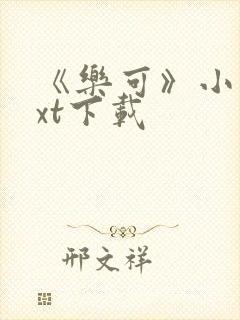 《樂可》小
xt下載
邢文祥